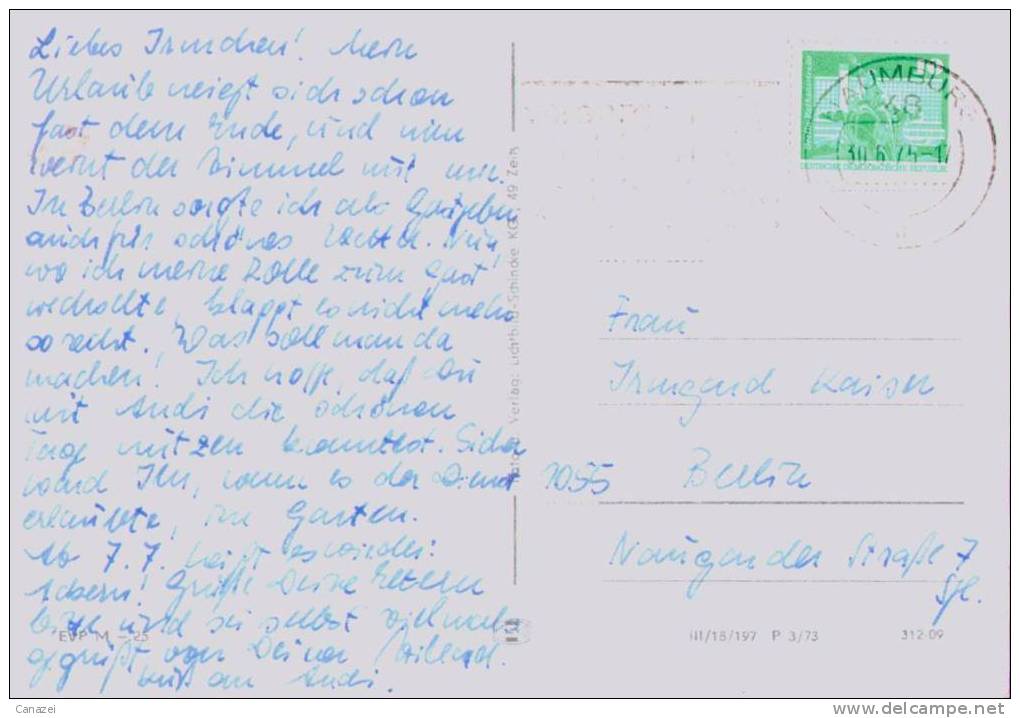 Liebes Irmchen! Mein
Urlaub neigt sich schon
fast dem Ende, und nun
weint der Himmel mit mir.
In Berlin sorgte ich als
auch für schönes Wetter. Nun,
wo ich meine Rolle zum Gast
wechselte, klappt es nicht mehr
so recht. Was soll man da
machen! Ich hoffe, daß Du
mit Andi die schönen
Tage nutzen konntest. Sicher
ward Ihr, wenn es der Dienst
erlaubte, im Garten.
Ab 7.7. heißt es wieder:
Ackern! Grüße Deine Eltern
und sei selbst vielmals
gegrüßt von Deiner
Gruß an Andi.
EVP M - 25
Verlag: Lichtbild-Schincke KG, 49 Zeitz
NAUMBURG
48
30.6.75-17
10
DEUTSCHE DEMOKRATISCHE REPUBLIK
Frau
Irmgard Kaiser
1055 Berlin
Naugarder Straße 7
Sfl.
III/18/197 P 3/73 312-09
Canazei
www.delcampe.net